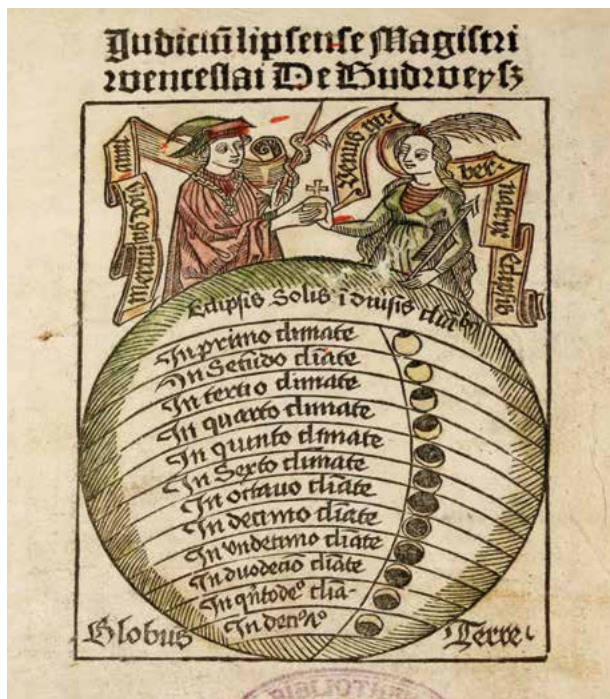 Judiciū lipsense Magistri
wenceslai De Budweysz
Mercurius Dn̄s anni
Venus gu-
ber-
natrix
eclipsis
Eclipsis Solis ī diuisis
In primo climate
In Secūdo clīate
In tertio climate
In quarto climate
In quinto climate
In Sexto climate
In octauo cliāte
In decimo cliāte
In vndecimo climate
In duodecīo cliāte
In
In
Globus
Terre